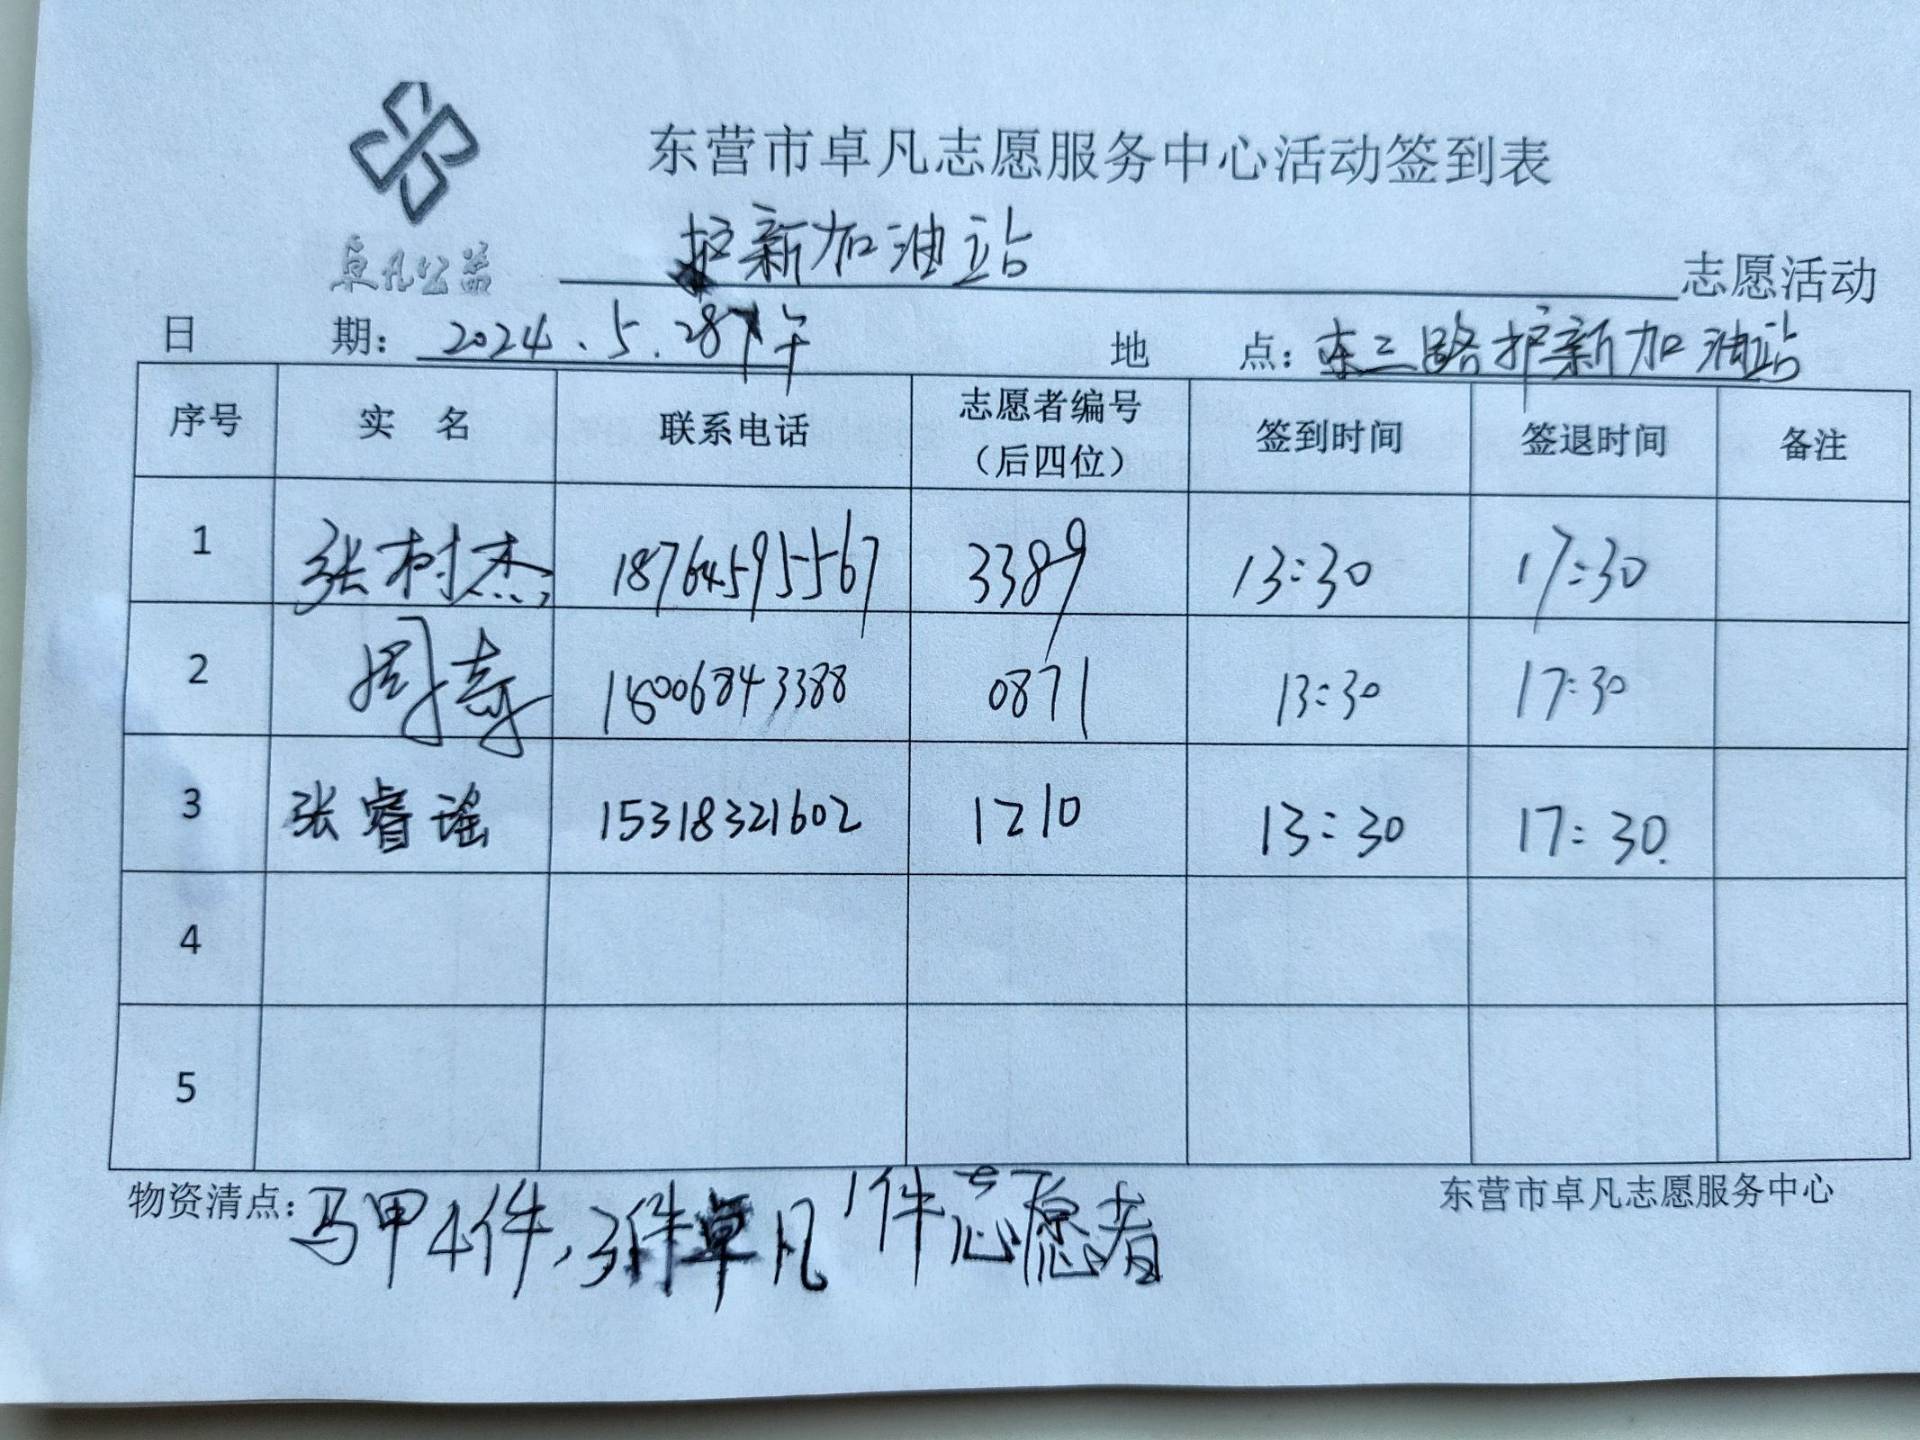 东营市卓凡志愿服务中心活动签到表
卓凡公益
护新加油站 志愿活动
日 期: 2024.5.28下午 地 点: 东三路护新加油站
序号 实 名 联系电话 志愿者编号（后四位） 签到时间 签退时间 备注
1 张树杰 18764595567 3389 13:30 17:30
2 周 18006843388 0871 13:30 17:30
3 张睿谣 15318321602 1210 13:30 17:30.
4
5
物资清点: 马甲4件,3件卓凡 1件志愿者
东营市卓凡志愿服务中心